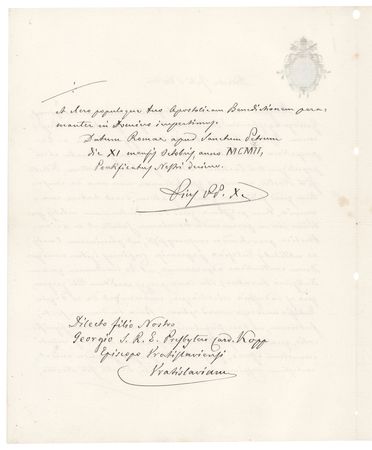 populoque tuo Apostolicam Benedictionem pera-
manter in Domino impertimus.
Datum Romae apud Sanctum Petrum
die XI mensis Octobris, anno
Pontificatus Nostri decimo.
Pius PP. X.
Dilecto filio Nostro
Georgio S. R. E. Presbytero Card. Kopp
Episcopo Vratislaviensi
Vratislaviam